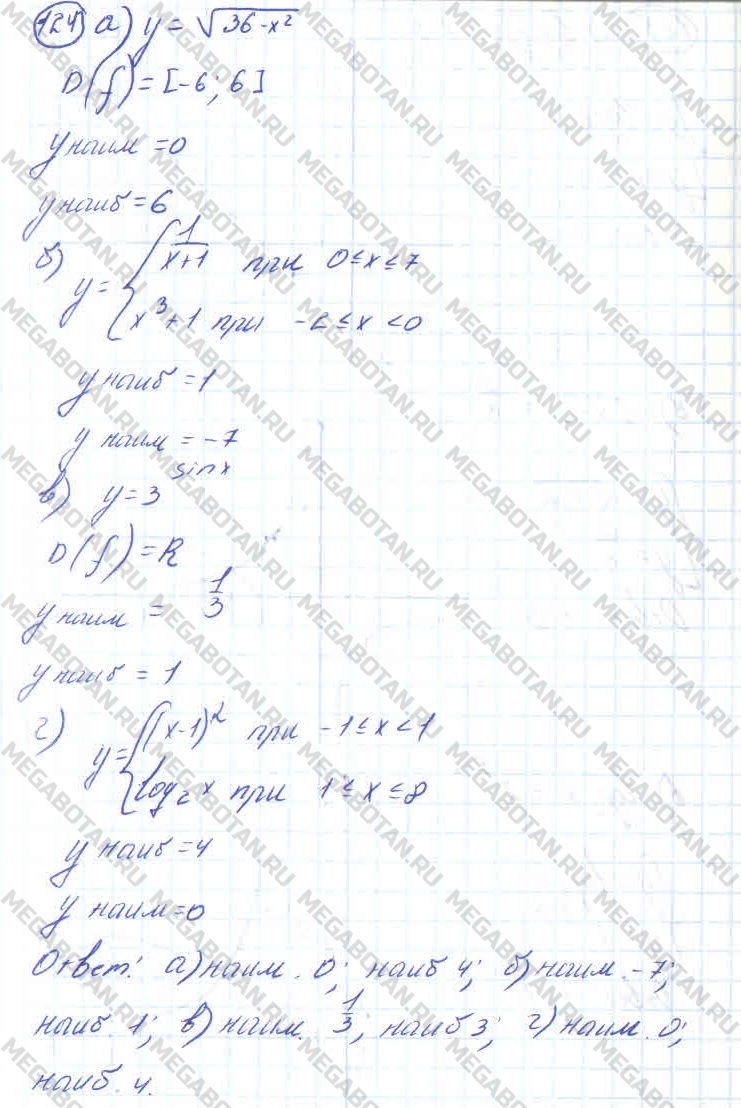 124 а) y = √(36-x²)
D(f) = [-6; 6]
y наим = 0
y наиб = 6
б) y = { 1/(x+1) при 0 ≤ x ≤ 7
x³+1 при -2 ≤ x < 0
y наиб = 1
y наим = -7
в) y = 3^(sin x)
D(f) = R
y наим = 1/3
y наиб = 1
г) y = { (x-1)² при -1 ≤ x < 1
log₂ x при 1 ≤ x ≤ 8
y наиб = 4
y наим = 0
Ответ: а) наим. 0; наиб 4; б) наим. -7;
наиб. 1; в) наим. 1/3; наиб 3; г) наим. 0;
наиб. 4.
MEGABOTAN.RU